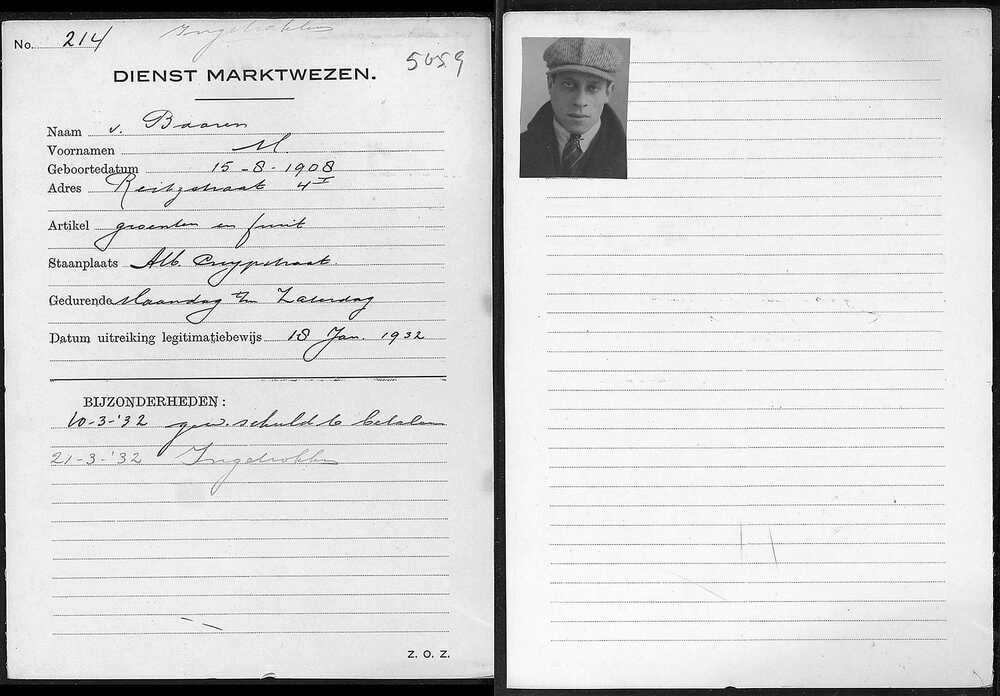 Ingetrokken
No. 214
5659
DIENST MARKTWEZEN.
Naam v. Baaren
Voornamen M.
Geboortedatum 15-8-1908
Adres Reitzstraat 4 I
Artikel groenten en fruit
Staanplaats Alb. Cuypstraat.
Gedurende Maandag t/m Zaterdag
Datum uitreiking legitimatiebewijs 18 Jan. 1932
BIJZONDERHEDEN:
10-3-'32 gew. schuld te betalen
21-3-'32 Ingetrokken
Z. O. Z.